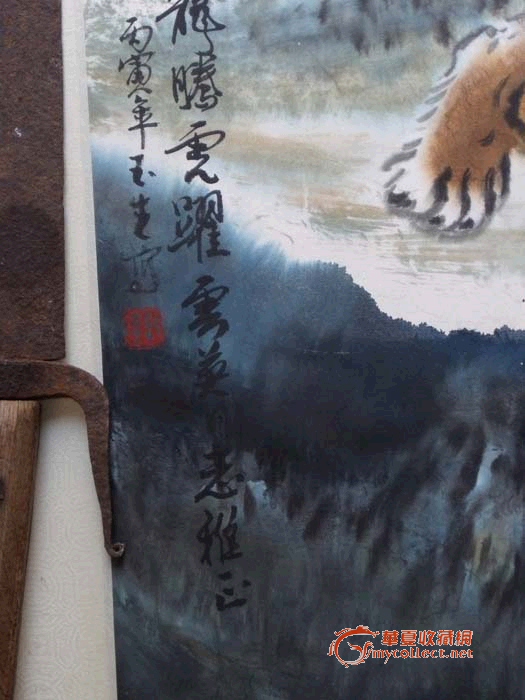 龍騰虎躍 雲英同志雅正
丙寅年玉生寫
華夏收藏網
mycollect.net